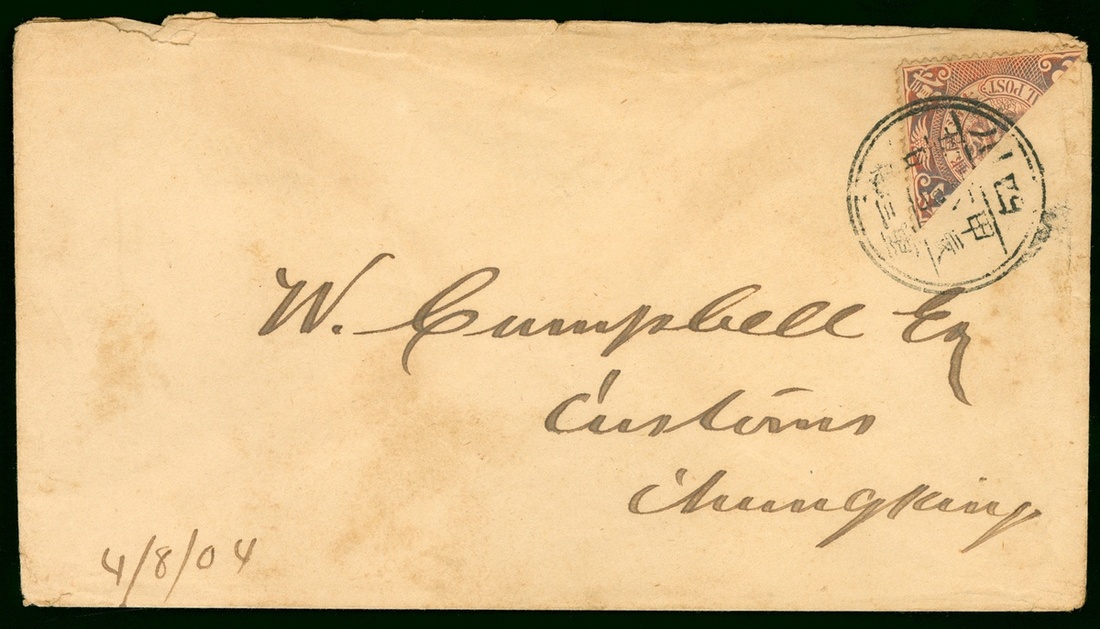 L POST
W. Campbell Eq
Customs
Chungking
4/8/04